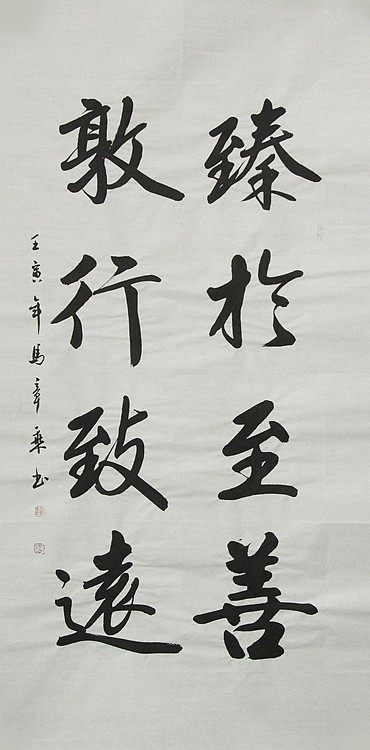 臻於至善
敦行致遠
壬寅年馬章乘书